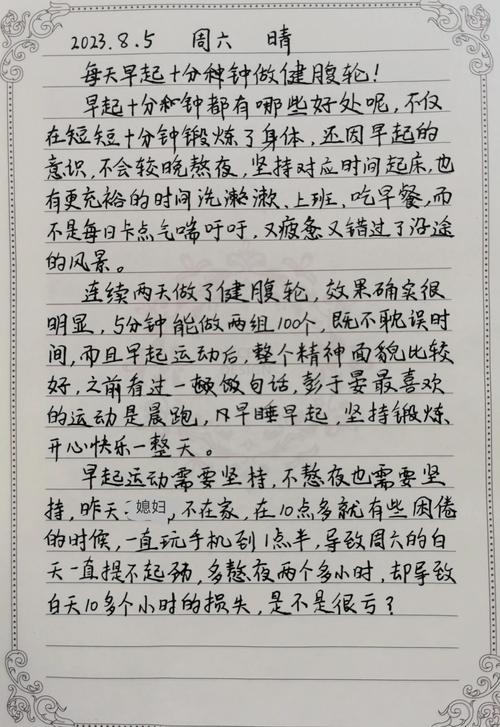 2023.8.5 周六 晴
每天早起十分种钟做健腹轮!
早起十分和钟都有哪些好处呢,不仅
在短短十分钟锻炼了身体,还因早起的
意识,不会较晚熬夜,坚持对应时间起床,也
有更充裕的时间洗漱漱、上班、吃早餐,而
不是每日卡点气喘吁吁,又疲惫又错过了沿途
的风景。
连续两天做了健腹轮,效果确实很
明显,5分钟能做两组100个,既不耽误时
间,而且早起运动后,整个精神面貌比较
好,之前看过一顿做句话,彭于晏最喜欢
的运动是晨跑,凡早睡早起,坚持锻炼,
开心快乐一整天。
早起运动需要坚持,不熬夜也需要坚
持,昨天媳妇不在家,在10点多就有些困倦
的时候,一直玩手机到1点半,导致周六的白
天一直提不起劲,多熬夜两个多小时,却导致
白天10多个小时的损失,是不是很亏?